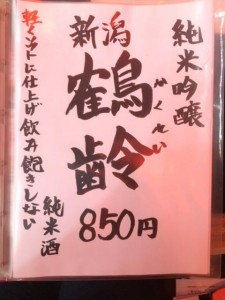 純米吟醸
新潟
鶴齢
かくれい
850円
軽くソフトに仕上げ飲み飽きしない
純米酒